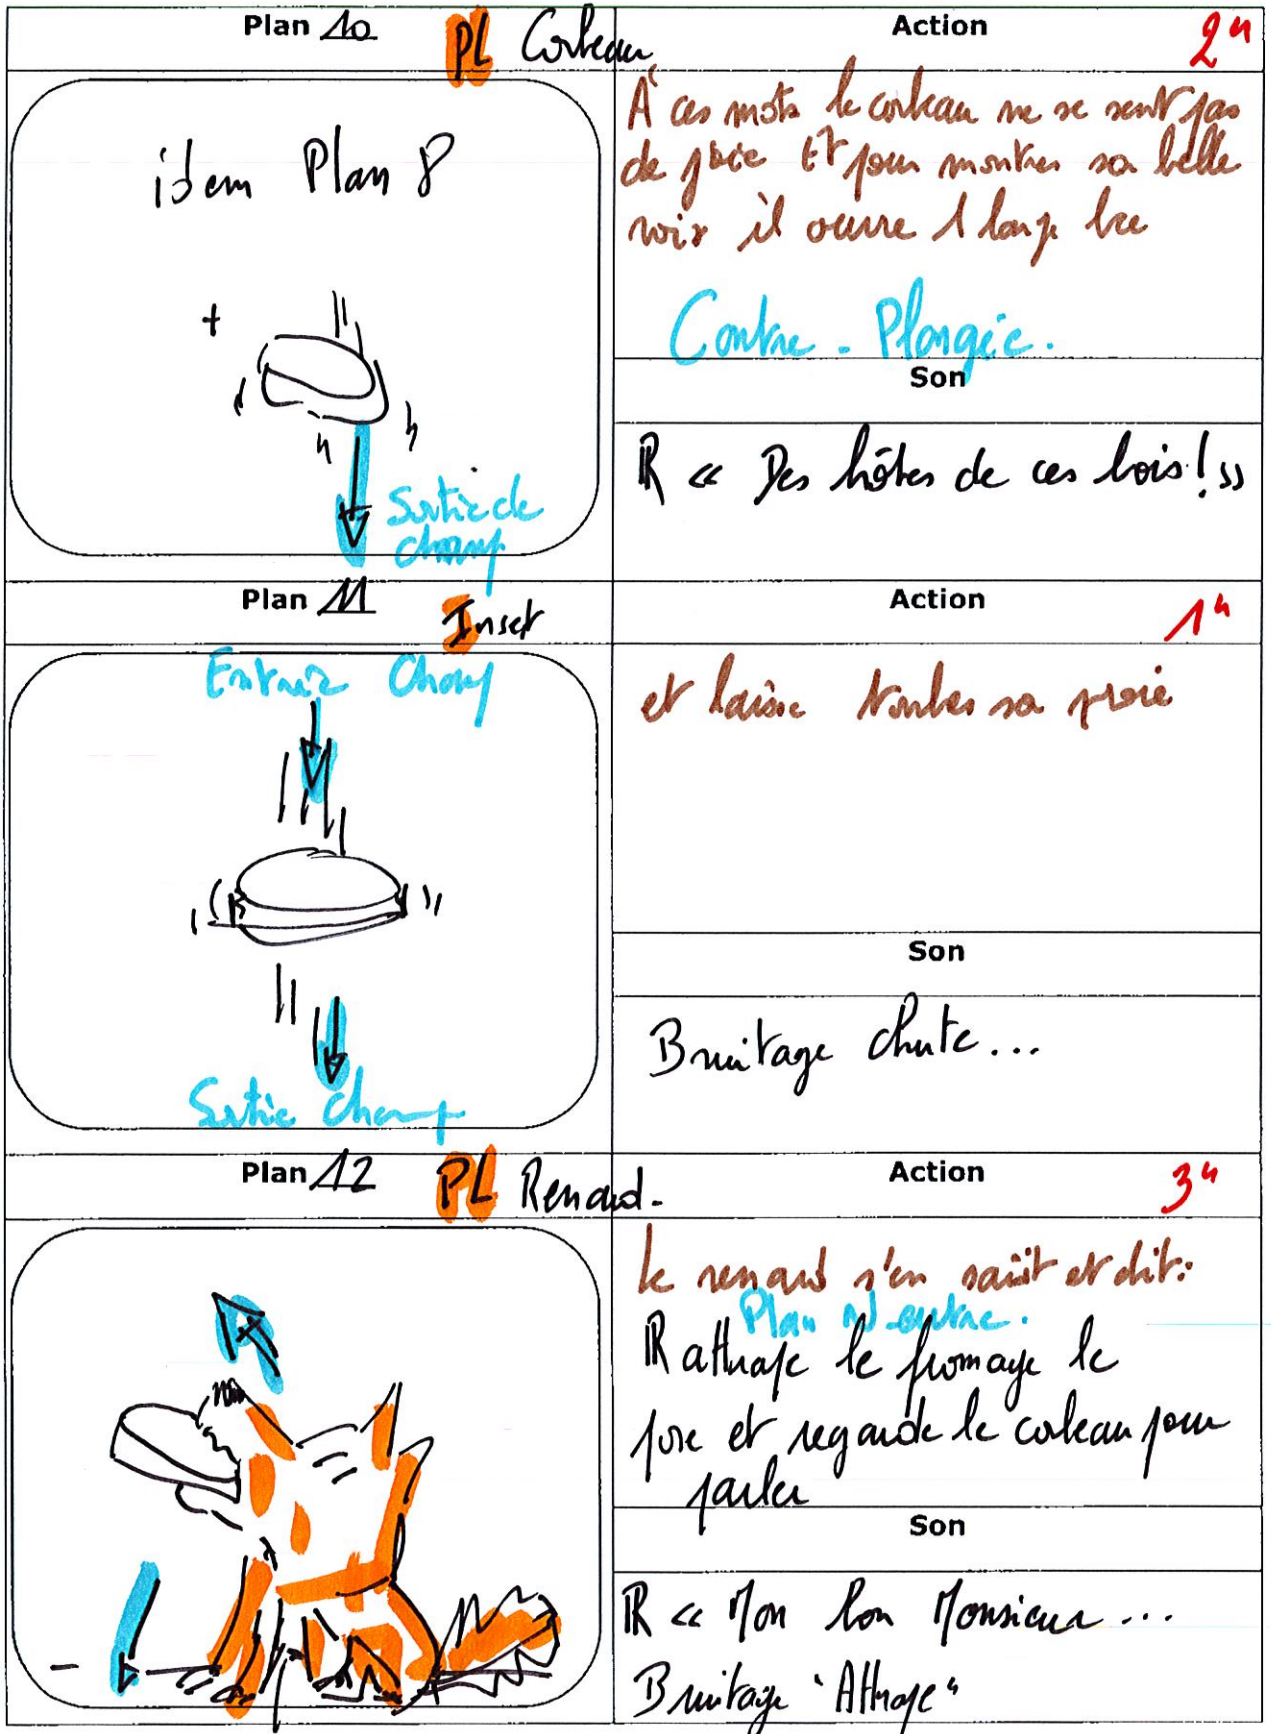 Plan 10
PL Corbeau
Action
2"
idem Plan 8
+
Sortie de
champ
À ces mots le corbeau ne se sent pas
de joie Et pour montrer sa belle
voix il ouvre 1 large bec
Contre-Plongée.
Son
R « Des hôtes de ces bois! »
Plan 11
Insert
Action
1"
Entrée Champ
Sortie Champ
et laisse tomber sa proie
Son
Bruitage chute...
Plan 12
PL Renard-
Action
3"
le renard s'en saisit et dit:
Plan Neutre.
R attrape le fromage le
pose et regarde le corbeau pour
parler
Son
R « Mon bon Monsieur ...
Bruitage "Attrape"